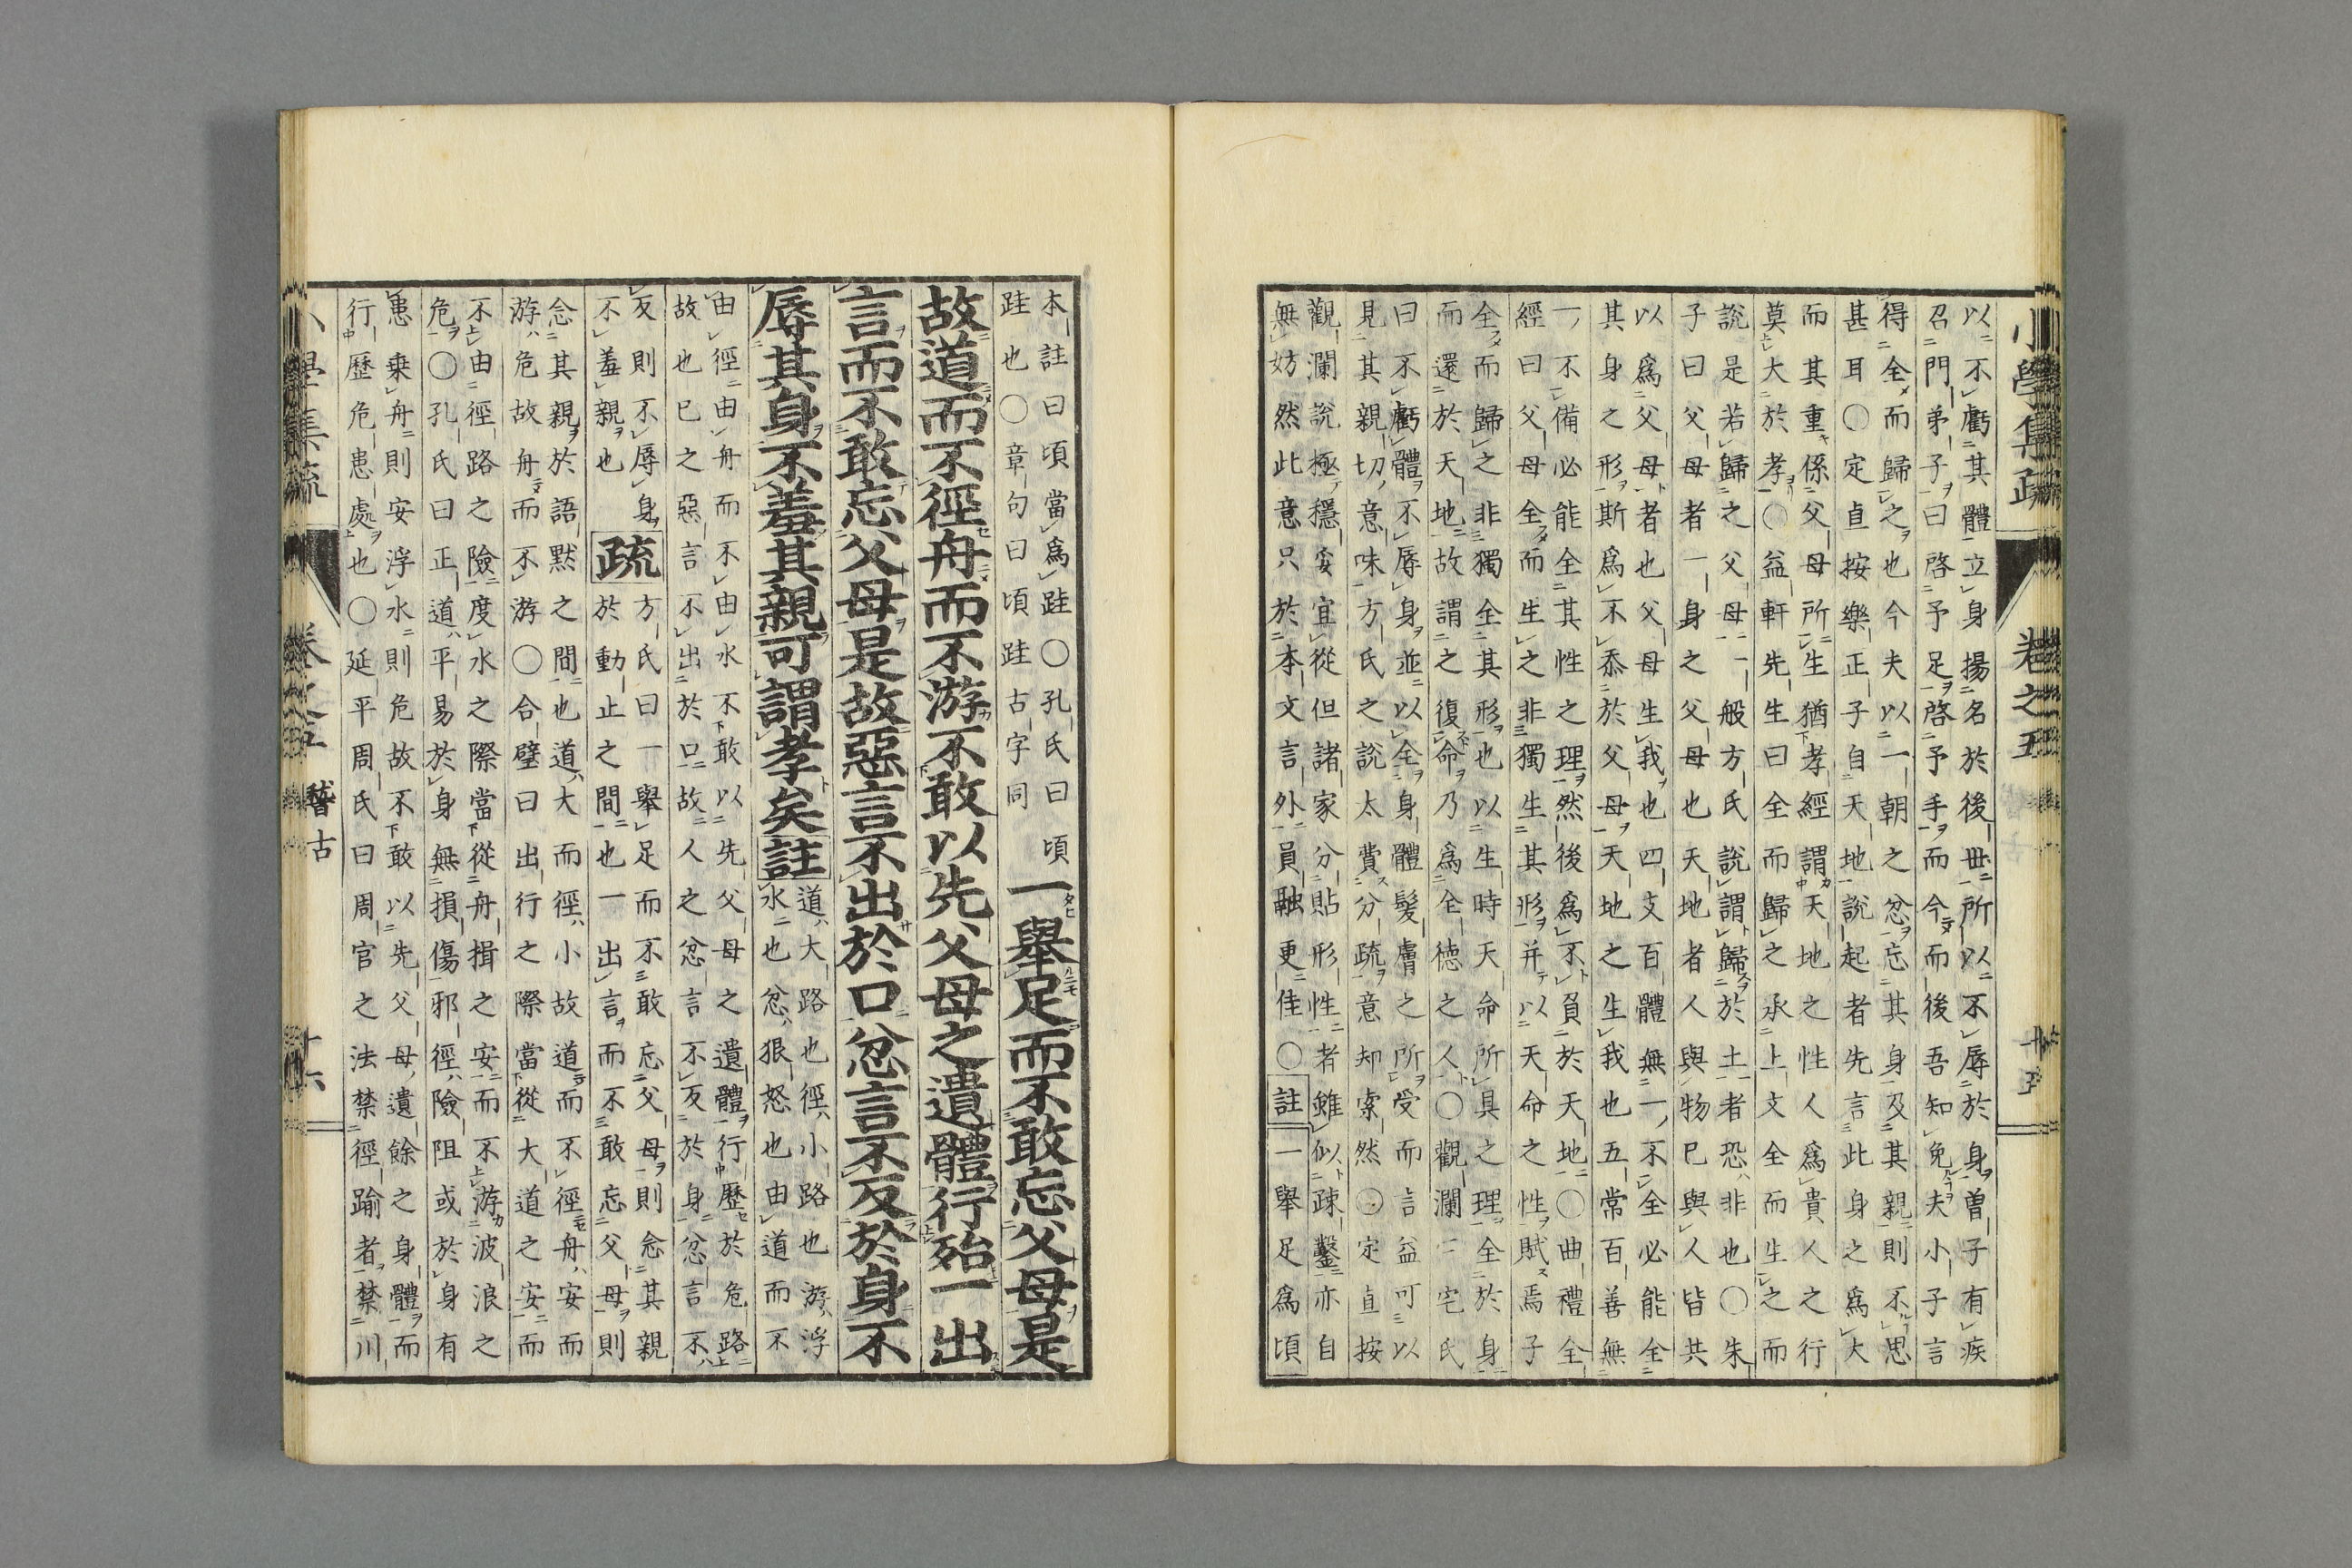 小學集疏
卷之五
十五
以不虧其體立身揚名於後世所以不辱於身曽子有疾
召門弟子曰啓予足啓予手而今而後吾知免夫小子言
得全而歸之也今夫以一朝之忿忘其身及其親則不思
甚耳〇定直按樂正子自天地說起者先言此身之爲大
而其重係父母所生猶孝經謂天地之性人爲貴人之行
莫大於孝〇益軒先生曰全而歸之承上文全而生之而
說是若歸之父母一般方氏說謂歸於土者恐非也〇朱
子曰父母者一身之父母也天地者人與物已與人皆共
以爲父母者也父母生我也四支百體無一不全必能全
其身之形斯爲不忝於父母天地之生我也五常百善無
一不備必能全其性之理然後爲不負於天地〇曲禮全
經曰父母全而生之非獨生其形并以天命之性賦焉子
全而歸之非獨全其形也以生時天命所具之理全於身
而還於天地故謂之復命乃爲仝德之人〇觀瀾三宅氏
曰不虧體不辱身並以全身體髮膚之所受而言益可以
見其親切意味方氏之說太費分疏意却索然〇定直按
觀瀾說極穩妥宜從但諸家分貼形性者雖似疎鑿亦自
無妨然此意只於本文言外員融更佳〇註一舉足爲頃
本註曰頃當爲跬〇孔氏曰頃
跬也〇章句曰頃跬古字同
一舉足而不敢忘父母是
故道而不徑舟而不游不敢以先父母之遺體行殆一出
言而不敢忘父母是故惡言不出於口忿言不反於身不
辱其身不羞其親可謂孝矣註
道大路也徑小路也游浮
水也忿狠怒也由道而不
由徑由舟而不由水不敢以先父母之遺體行歷於危路
故也已之惡言不出於口故人之忿言不反於身忿言不
反則不辱身方氏曰一舉足而不敢忘父母則念其親
不羞親也疏於動止之間也一出言而不敢忘父母則
念其親於語默之間也道大而徑小故道而不徑舟安而
游危故舟而不游〇合璧曰出行之際當從大道之安而
不由徑路之險度水之際當從舟揖之安而不游波浪之
危〇孔氏曰正道平易於身無損傷邪徑險阻或於身有
患乗舟則安浮水則危故不敢以先父母遺餘之身體而
行歷危患處也〇延平周氏曰周官之法禁徑踰者禁川
稽古
十六